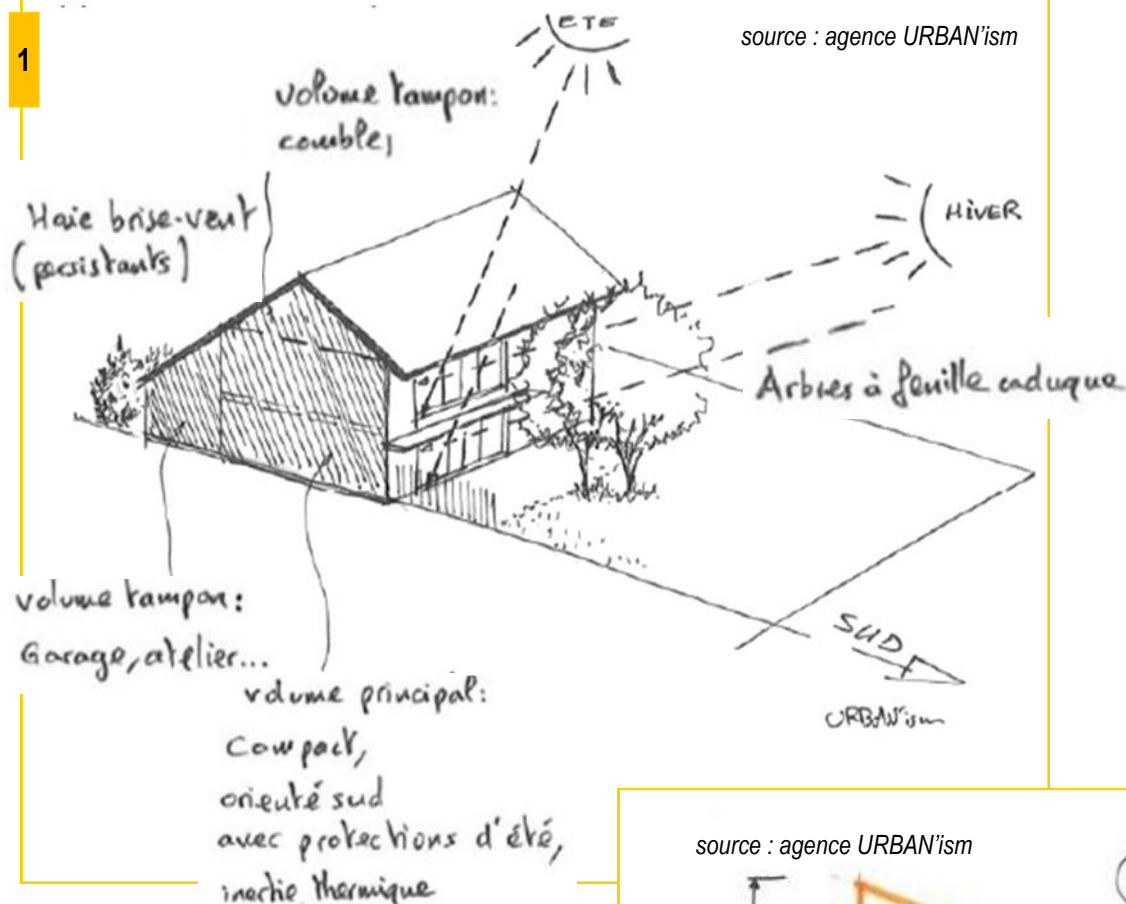 1
source : agence URBAN'ism
ETE
volume tampon:
combles
HIVER
Haie brise-vent
(persistants)
Arbres à feuille caduque
volume tampon:
Garage, atelier...
SUD
URBAN'ism
volume principal:
Compact,
orienté sud
avec protections d'été,
inertie thermique
source : agence URBAN'ism